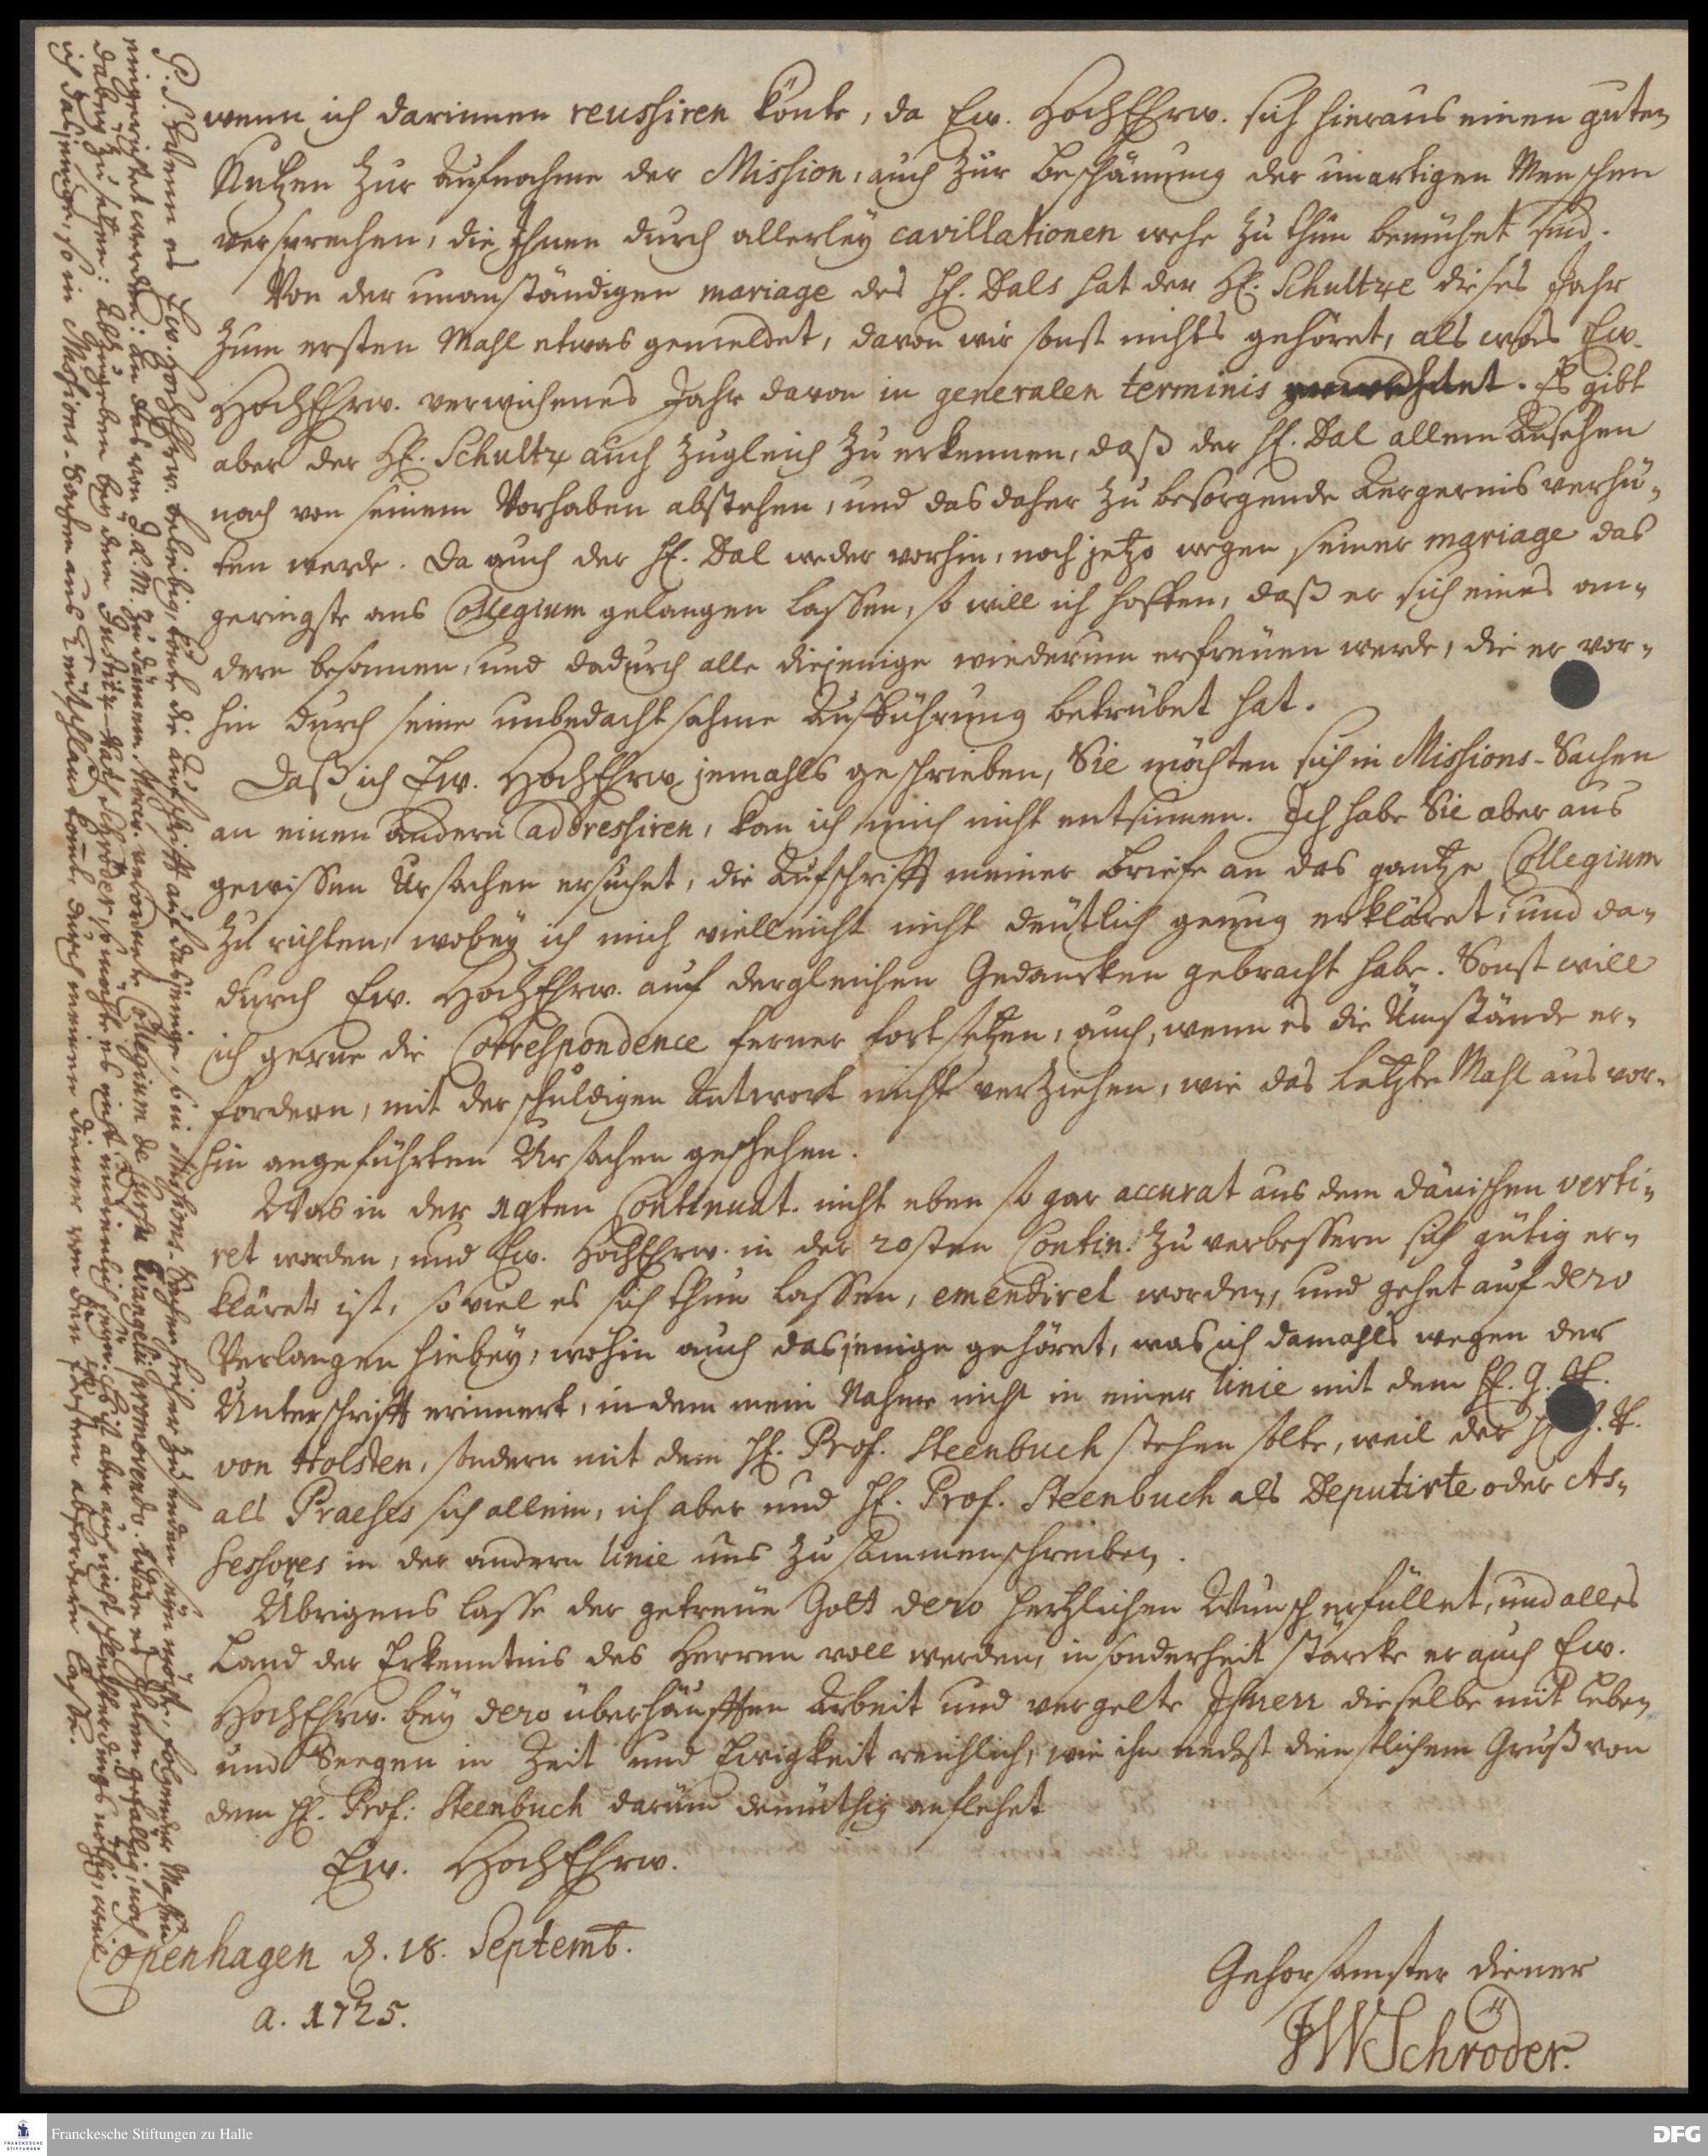 wenn ich darinnen reussiren könte, da Ew. HochEhrw. sich hieraus einen guten
Nutzen zur Aufnahme der Mission, auch zur Beschämung der unartigen Menschen
versprechen, die Ihnen durch allerley cavillationen wehe zu thun bemühet sind.
Von der unanständigen mariage des H. Dals hat der H. Schultze dieses Jahr
zum ersten Mahl etwas gemeldet, davon wir sonst nichts gehöret, als was Ew.
HochEhrw. verwichenes Jahr davon in generalen terminis. Es gibt
aber der H. Schultz auch zugleich zu erkennen, daß der H. Dal allem Ansehen
nach von seinem Vorhaben abstehen, und das daher zu besorgende Aergernis verhü-
ten werde. Da auch der H. Dal weder vorhin, noch jetzo wegen seiner mariage das
geringste ans Collegium gelangen lassen, so will ich hoffen, daß er sich eines an-
dern besonnen, und dadurch alle diejenige wiederum erfreuen werde, die er vor-
hin durch seine unbedachtsahme Aufführung betrübet hat.
Daß ich Ew. HochEhrw. jemahls geschrieben, Sie möchten sich in Missions-Sachen
an einen andern addressiren, kan ich mich nicht entsinnen. Ich habe Sie aber aus
gewissen Ursachen ersuchet, die Aufschrifft meiner Briefe an das gantze Collegium
zu richten, wobey ich mich vielleicht nicht deutlich genug erkläret, und da-
durch Ew. HochEhrw. auf dergleichen Gedancken gebracht habe. Sonst will
ich gerne die Correspondence ferner fortsetzen, auch, wenn es die Umstände er-
fordern, mit der schuldigen Antwort nicht verziehen, wie das letzte Mahl aus vor-
hin angeführten Ursachen geschehen.
Was in der 19ten Continuat. nicht eben so gar accurat aus dem dänischen verti-
ret worden, und Ew. HochEhrw. in der 20sten Contin. zu verbessern sich gütig er-
kläret, ist, so viel es sich thun lassen, emendiret worden, und gehet auf dero
Verlangen hiebey, wohin auch dasjenige gehöret, was ich damahls wegen der
Unterschrifft erinnert, indem mein Nahme nicht in einer linie mit dem H. G. R.
von Holsten, sondern mit dem H. Prof. Steenbuch stehen solte, weil der H. G. R.
als Praeses sich allein, ich aber und H. Prof. Steenbuch als Deputirte oder As-
sessores in der andern linie uns zusammenschreiben.
Übrigens lasse der getreue Gott dero hertzlichen Wunsch erfüllet, und alles
Land der Erkenntnis des Herrn voll werden, insonderheit stärcke er auch Ew.
HochEhrw. bey dero überhäufften Arbeit und vergelte Ihnen dieselbe mit Leben
und Seegen in Zeit und Ewigkeit reichlich, wie ihn nebst dienstlichem Gruß von
dem H. Prof: Steenbuch darüm demüthig anflehet
Ew. HochEhrw.
Copenhagen d. 18. Septemb.
a. 1725.
Gehorsamster diener
JWSchröder.
P. S. Wenn es Ew. HochEhrw. beliebig, könte die Aufschrifft auf dasjenige, so in Missions-Sachen hieher zu senden seyn möchte, folgender Maßen
eingerichtet werden: An das von I. K. M. zu Dännem. Norw. verordnete Collegium de cursu Evangelii promovendo. Wäre es Ihnen gefällig, noch
dabey zu setzen: Abzugeben bey dem Justitz-Rath Schröder, so möchte es nicht undienlich seyn. Es ist aber auch nicht schlechterdings nöthig, weil
ich dasjenige, so in Missions-Sachen aus Teutschland komt, durch meinen Diener von den Posten abfordern lasse.
Franckesche Stiftungen zu Halle
FRANCKESCHE STIFTUNGEN
DFG